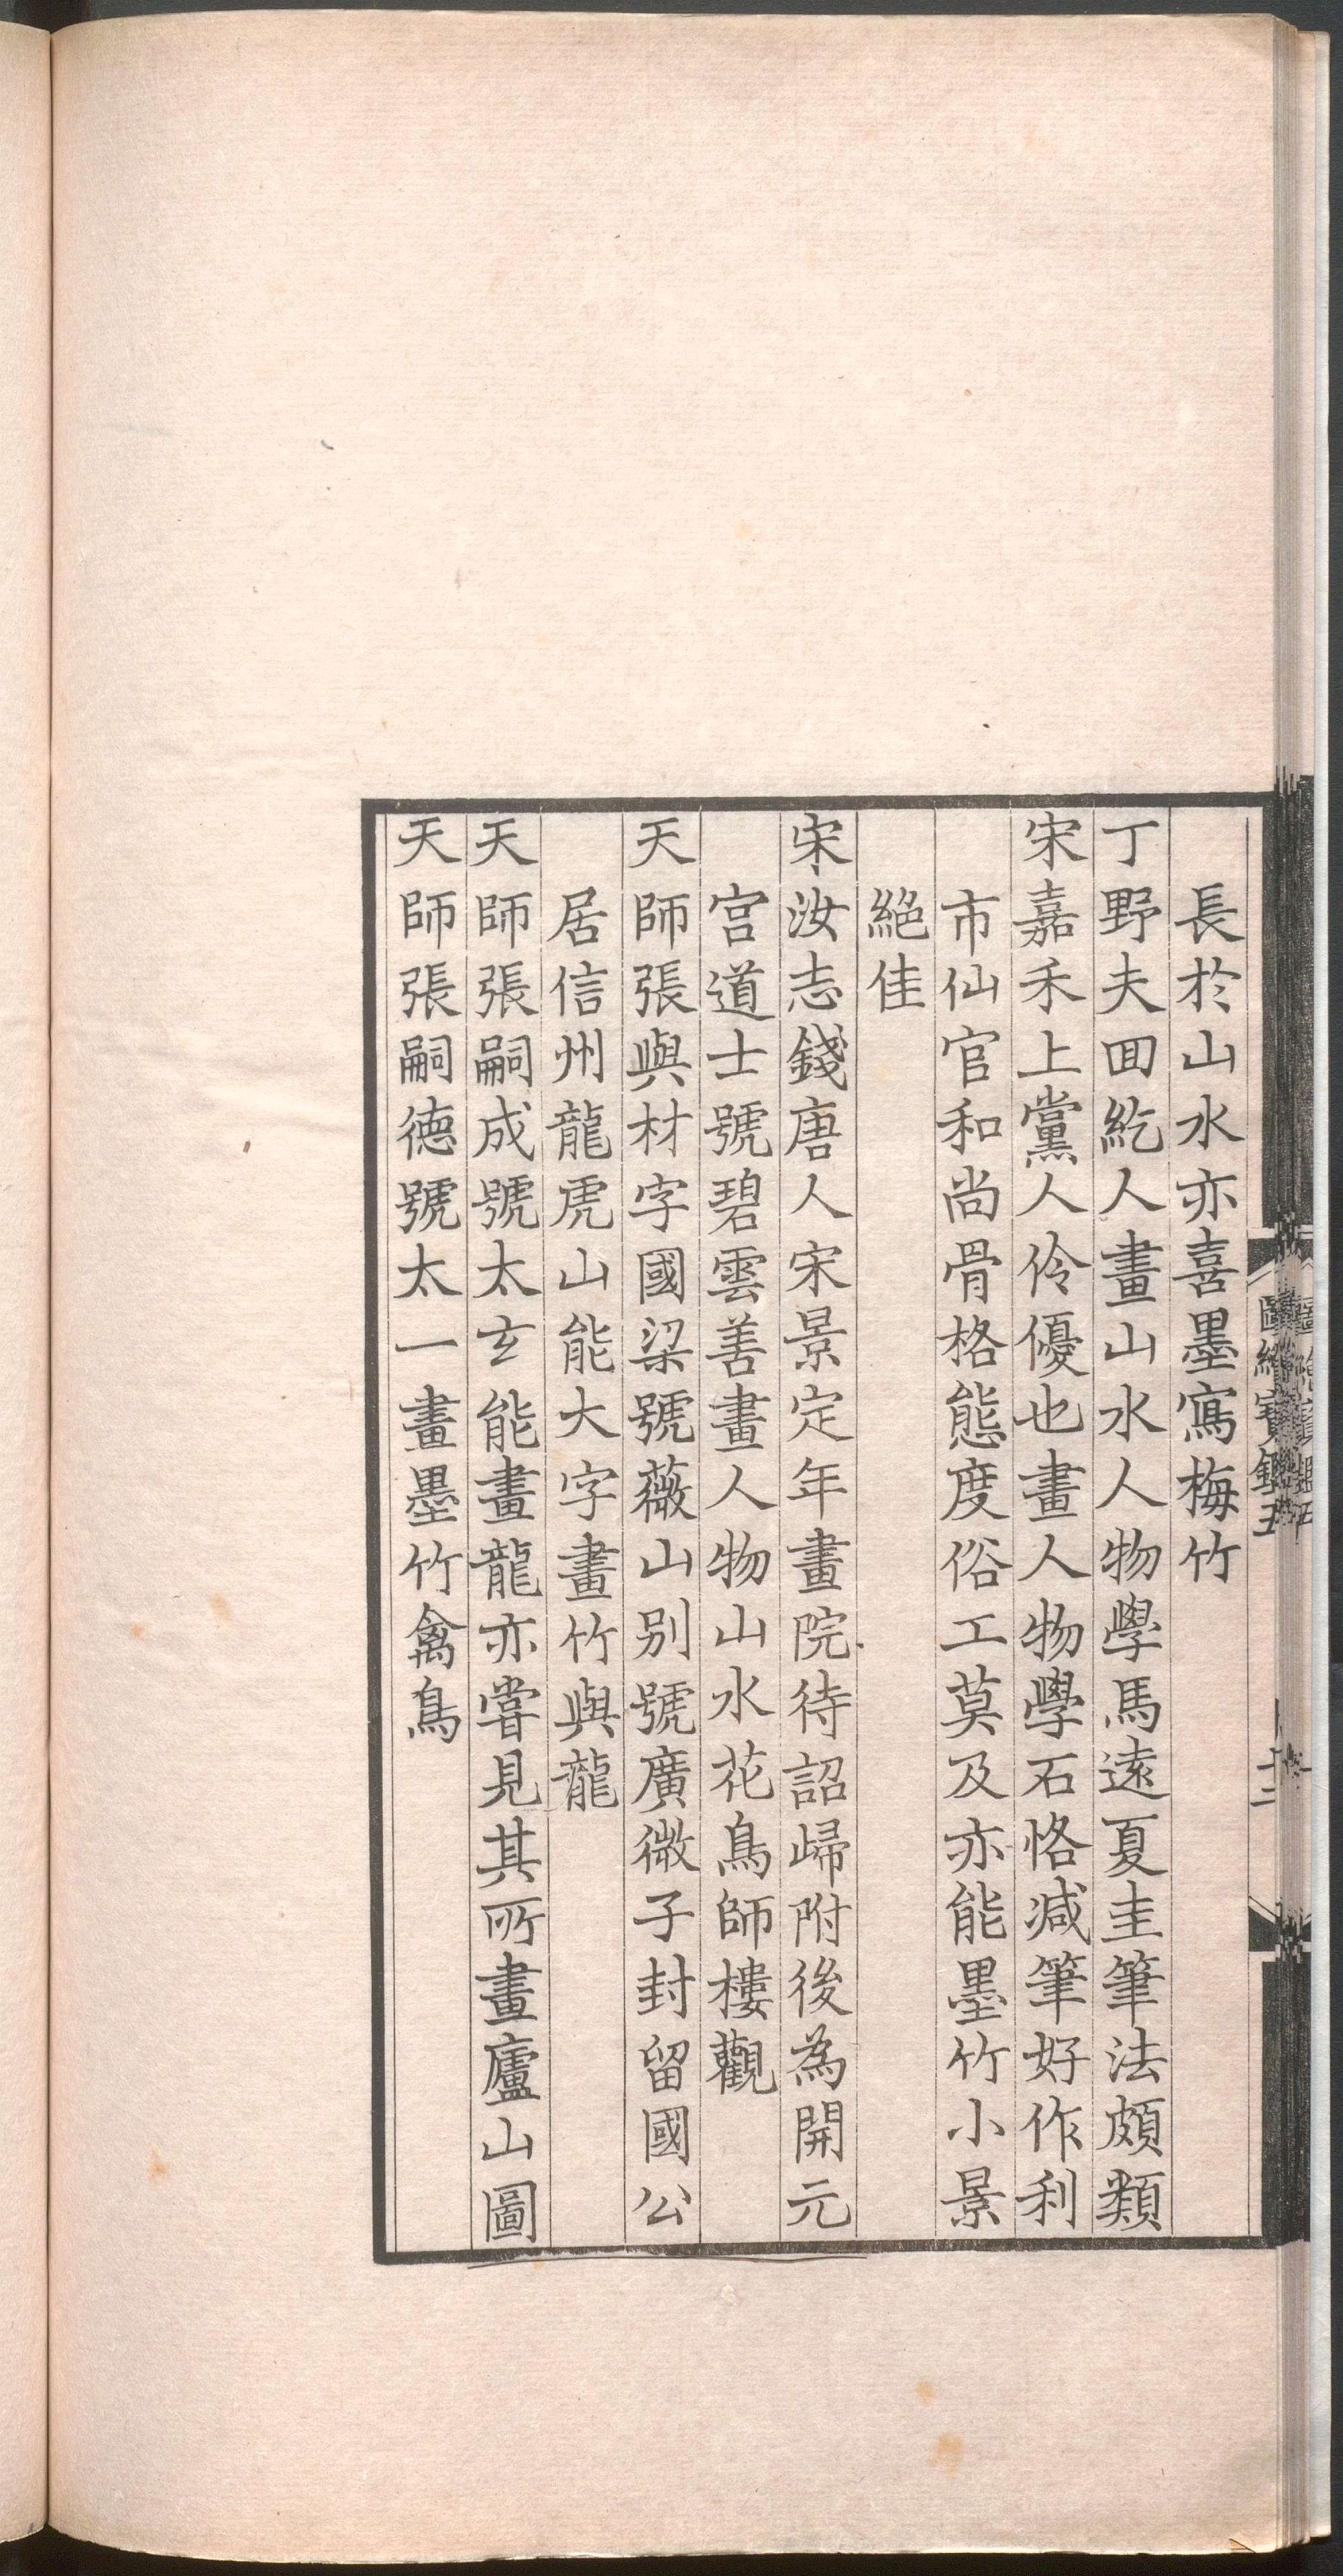 長於山水亦喜墨寫梅竹
丁野夫回紇人畫山水人物學馬遠夏圭筆法頗類
宋嘉禾上黨人伶優也畫人物學石恪減筆好作利
市仙官和尚骨格態度俗工莫及亦能墨竹小景
絕佳
宋汝志錢唐人宋景定年畫院待詔歸附後為開元
宮道士號碧雲善畫人物山水花鳥師樓觀
天師張與材字國梁號薇山別號廣微子封留國公
居信州龍虎山能大字畫竹與龍
天師張嗣成號太玄能畫龍亦嘗見其所畫廬山圖
天師張嗣德號太一畫墨竹禽鳥
圖繪寶鑑五